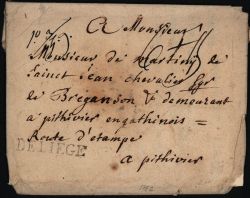 A Monsieur
Monsieur de martin de
Sainct Jean chevalier Sgr
de Breganson & demeurant
a pithivier engathinois =
Route d'etampe
DE LIEGE
a pithivier
1782